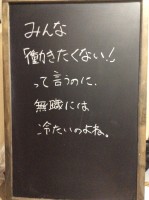 みんな
「働きたくない！」
って言うのに、
無職には
冷たいのよね。